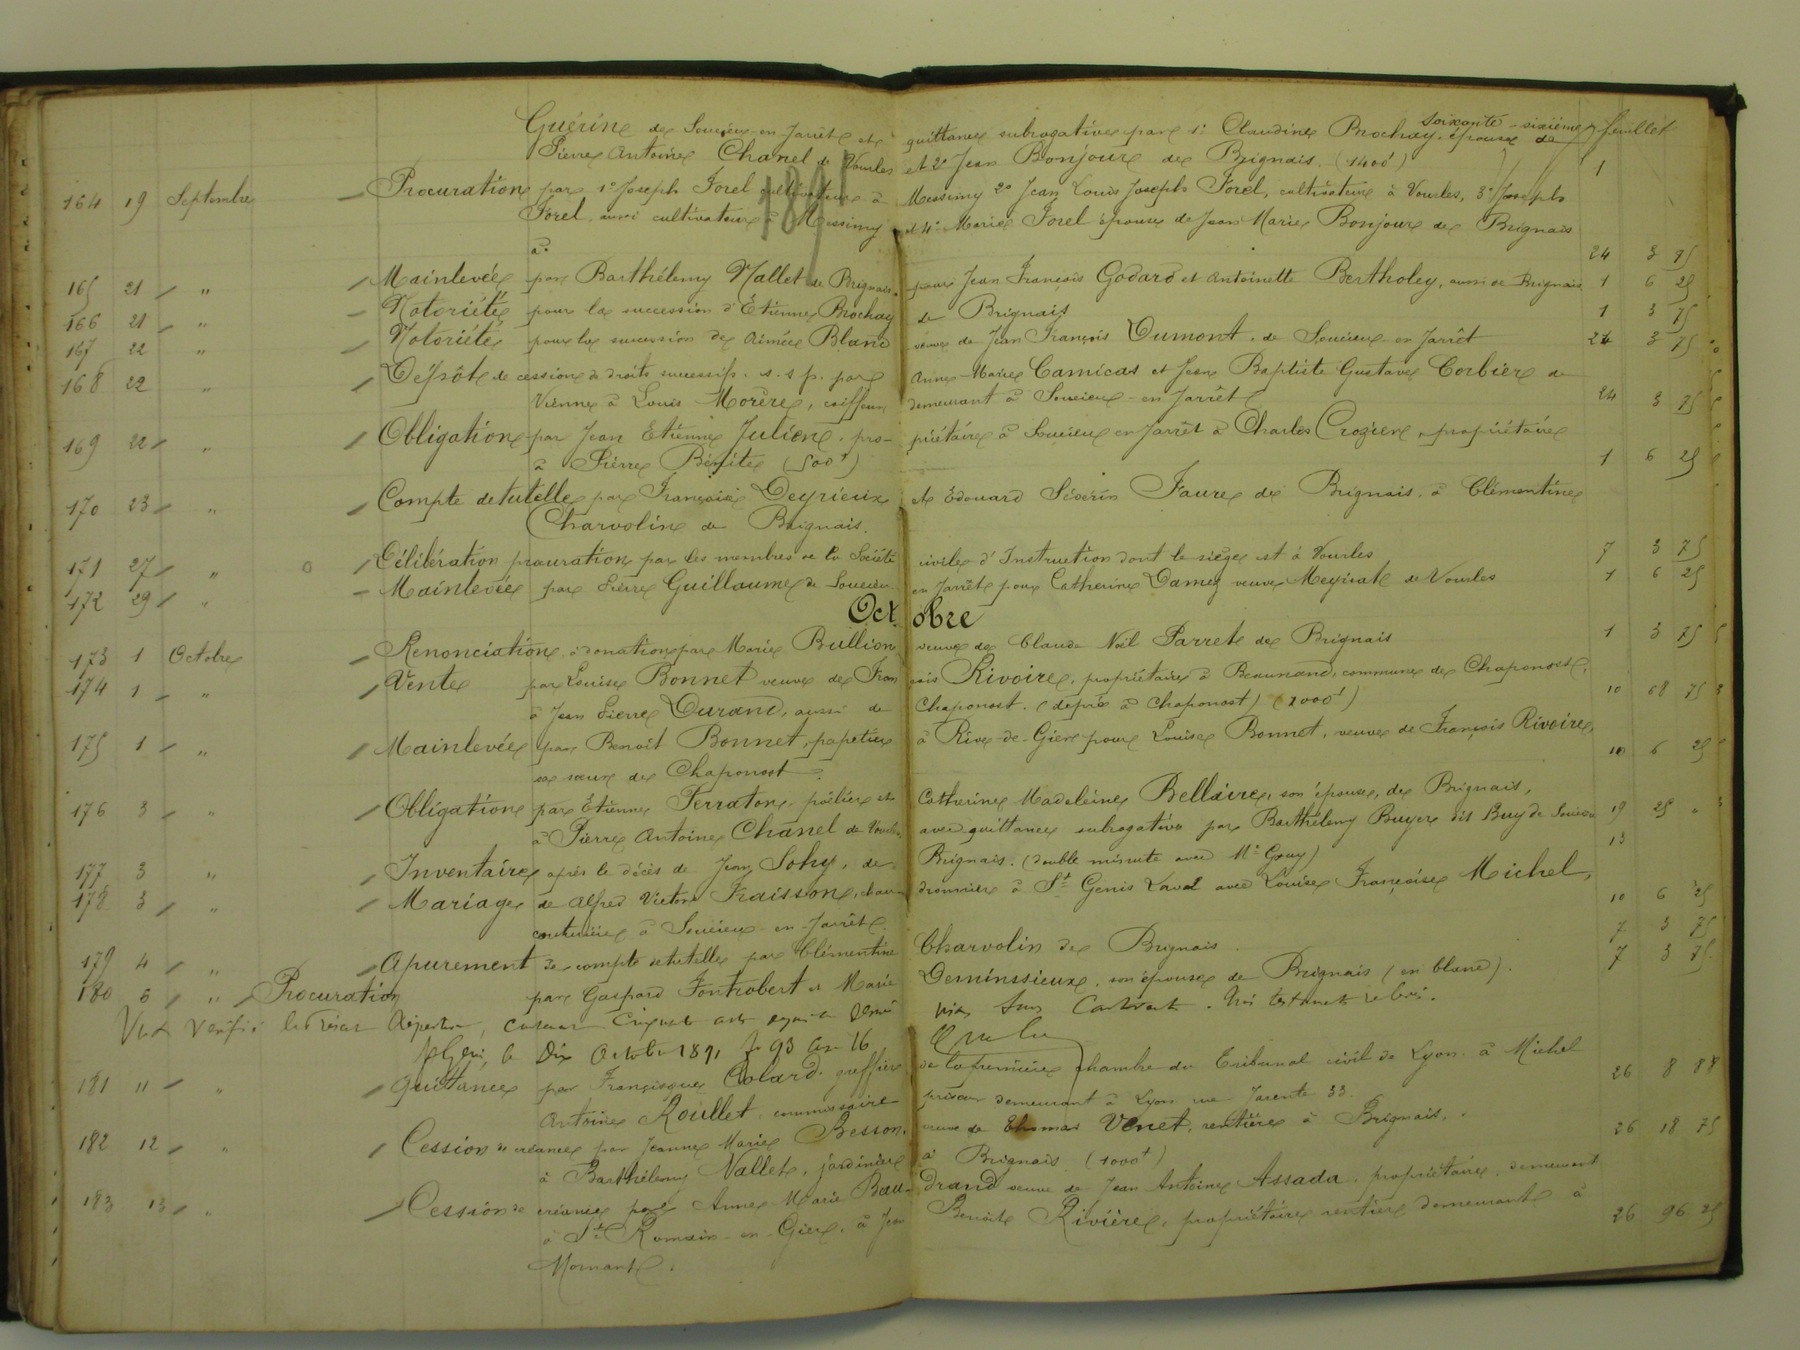 soixante-sixième feuillet
Guérin de Soucieu-en-Jarrêt et quittance subrogative par 1° Claudine Brochay, épouse de
Pierre Antoine Chanel de Vourles et 2° Jean Bonjour de Brignais. (1400f) 1
1891
164 19 Septembre Procuration par 1° Joseph Forel cultivateur à Messimy 2° Jean Louis Joseph Forel, cultivateur à Vourles, 3° Joseph
Forel, aussi cultivateur à Messimy et 4° Marie Forel épouse de Jean Marie Bonjour de Brignais
à. 24 3 75
165 21 " Mainlevée par Barthélemy Nallet de Brignais, pour Jean François Godard et Antoinette Bertholey, aussi de Brignais 1 6 25
166 21 " Notoriété pour la succession d'Etienne Brochay de Brignais 1 3 75
167 22 " Notoriété pour la succession de Aimée Blanc veuve de Jean François Dumont, de Soucieu-en-Jarrêt 24 3 75
168 22 " Dépôt de cession de droits successifs. s. s. p. par Anne-Marie Camicas et Jean Baptiste Gustave Corbière de
Vienne à Louis Morère, coiffeur demeurant à Soucieu-en-Jarrêt 24 3 75
169 22 " Obligation par Jean Etienne Julien, propriétaire à Soucieu en Jarrêt à Charles Crozier, propriétaire
à Pierre Bénite (500f) 1 6 25
170 23 " Compte de tutelle par Françoise Deyrieux et Edouard Séverin Faure de Brignais, à Clémentine
Charvolin de Brignais.
171 27 " Délibération procuration par les membres de la Société civile d'Instruction dont le siège est à Vourles 7 3 75
172 29 " Mainlevée par Pierre Guillaume de Soucieu en Jarrêt pour Catherine Damez veuve Meyriat de Vourles 1 6 25
Octobre
173 1 Octobre Renonciation à donation par Marie Bullion veuve de Claude Noël Parret de Brignais 1 3 75
174 1 " Vente par Louise Bonnet veuve de François Rivoire, propriétaire à Beaunand, commune de Chaponost,
à Jean Pierre Durand, aussi de Chaponost. (dépôt à Chaponost) (1000f) 10 68 75
175 1 " Mainlevée par Benoit Bonnet, papetier à Rive-de-Gier pour Louise Bonnet, veuve de François Rivoire,
sa sœur de Chaponost. 10 6 25
176 3 " Obligation par Etienne Ferraton, poêlier et Catherine Madeleine Bellaire, son épouse, de Brignais,
à Pierre Antoine Chanel de Vourles, avec quittance subrogative par Barthélemy Buyer dit Buy de Soucieu 19 25 "
177 3 " Inventaire après le décès de Jean Sohy, de Brignais. (double minute avec Me Gouy) 13
178 3 " Mariage de Alfred Victor Fraisson, chaudronnier à St Genis Laval avec Louise Françoise Michel,
couturière à Soucieu-en-Jarrêt 10 6 25
179 4 " Apurement de compte de tutelle par Clémentine Charvolin de Brignais 7 3 75
180 6 " Procuration par Gaspard Fontrobert et Marie Deminssieux, son épouse de Brignais (en blanc). 7 3 75
Vu et vérifié le présent Répertoire, contenant cinquante
le Dix Octobre 1891 f° 93 case 16
181 11 " Quittance par Françisque Colard, greffier de la première chambre du Tribunal civil de Lyon à Michel
Antoine Roullet, commissaire priseur demeurant à Lyon rue Jarente 33. 26 8 88
182 12 " Cession de créance par Jeanne Marie Besson, veuve de Thomas Venet, rentière à Brignais,
à Barthélemy Nallet, jardinier à Brignais (1000f) 26 18 75
183 13 " Cession de créance par Anne Marie Baudrand veuve de Jean Antoine Assada, propriétaire, demeurant
à St Romain-en-Gier, à Jean Benoît Rivière, propriétaire rentier demeurant à
Mornant. 26 96 25